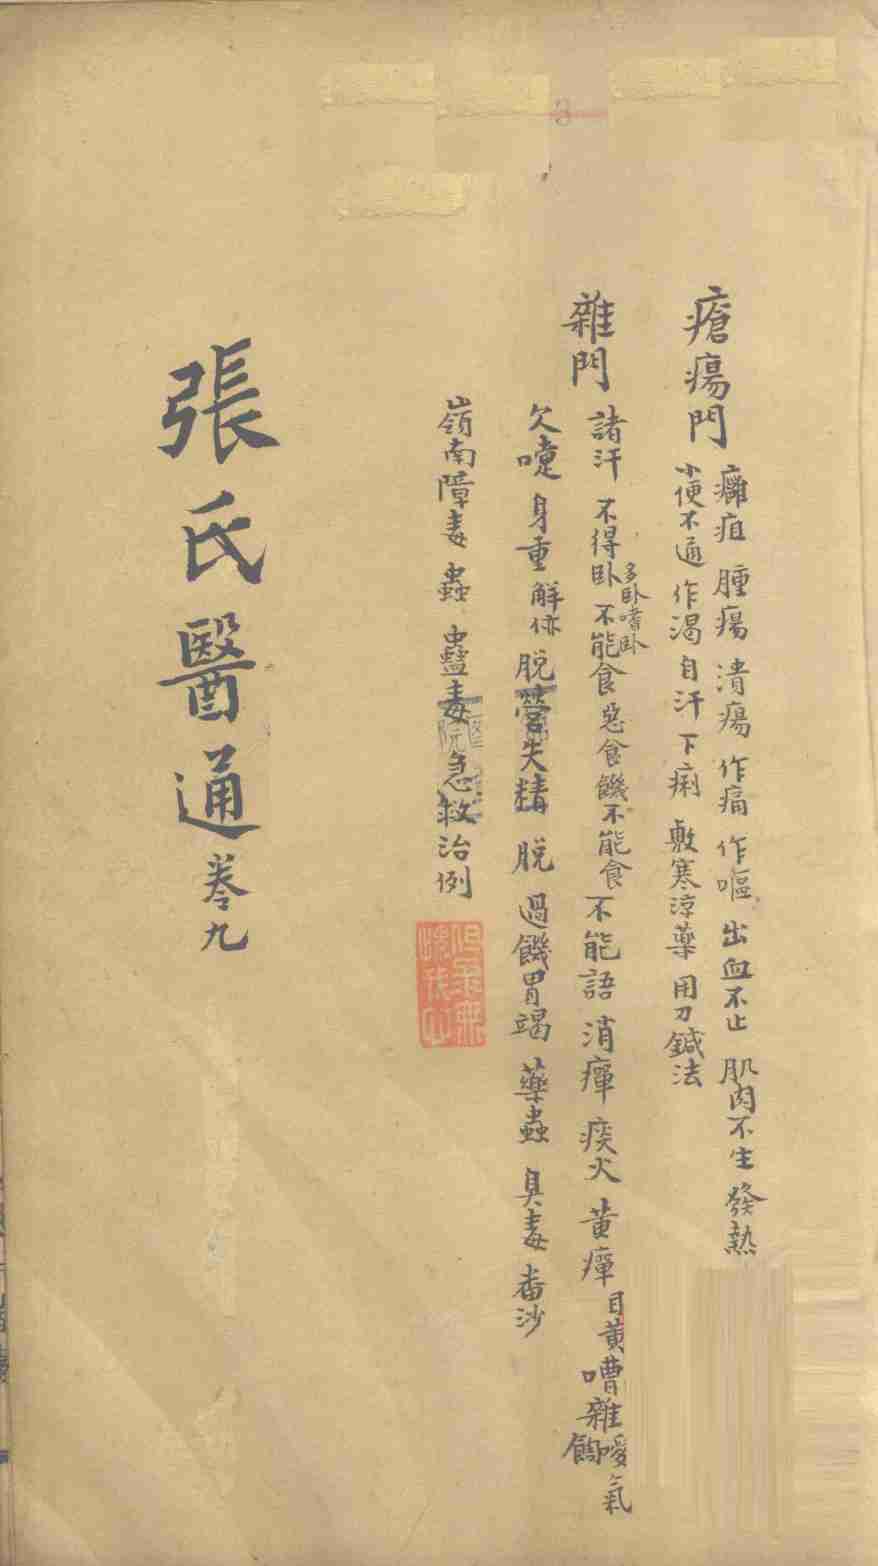 3
瘡瘍門
癰疽 腫瘍 潰瘍 作痛 作嘔 出血不止 肌肉不生 發熱
小便不通 作渴 自汗 下痢 敷寒涼藥 用刀鍼法
雜門
諸汗 不得臥 多臥嗜臥 不能食 惡食 饑不能食 不能語 消癉 痰火 黃癉 目黃 嘈雜 噯氣
欠嚏 身重 解㑊 脫營失精 脫 過饑胃竭 藥蟲 臭毒 番沙
嶺南障毒 蟲 蠱毒 急救治例
張氏醫通 卷九